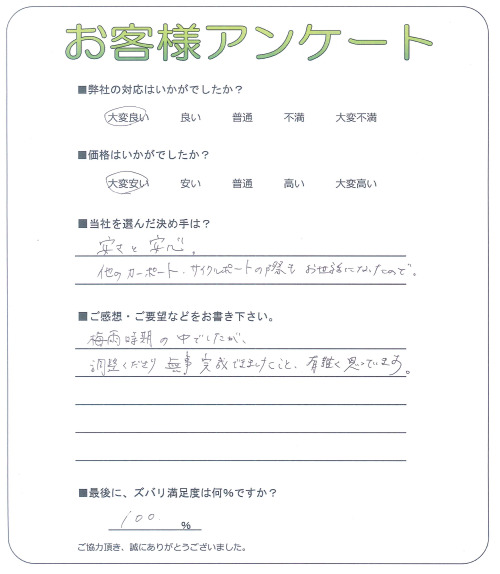 お客様アンケート
■弊社の対応はいかがでしたか？
大変良い 良い 普通 不満 大変不満
■価格はいかがでしたか？
大変安い 安い 普通 高い 大変高い
■当社を選んだ決め手は？
安さと安心。
他のカーポート、サイクルポートの際もお世話になったので。
■ご感想・ご要望などをお書き下さい。
梅雨時期の中でしたが、
調整くださり無事完成できましたこと、有難く思っています。
■最後に、ズバリ満足度は何％ですか？
100 ％
ご協力頂き、誠にありがとうございました。